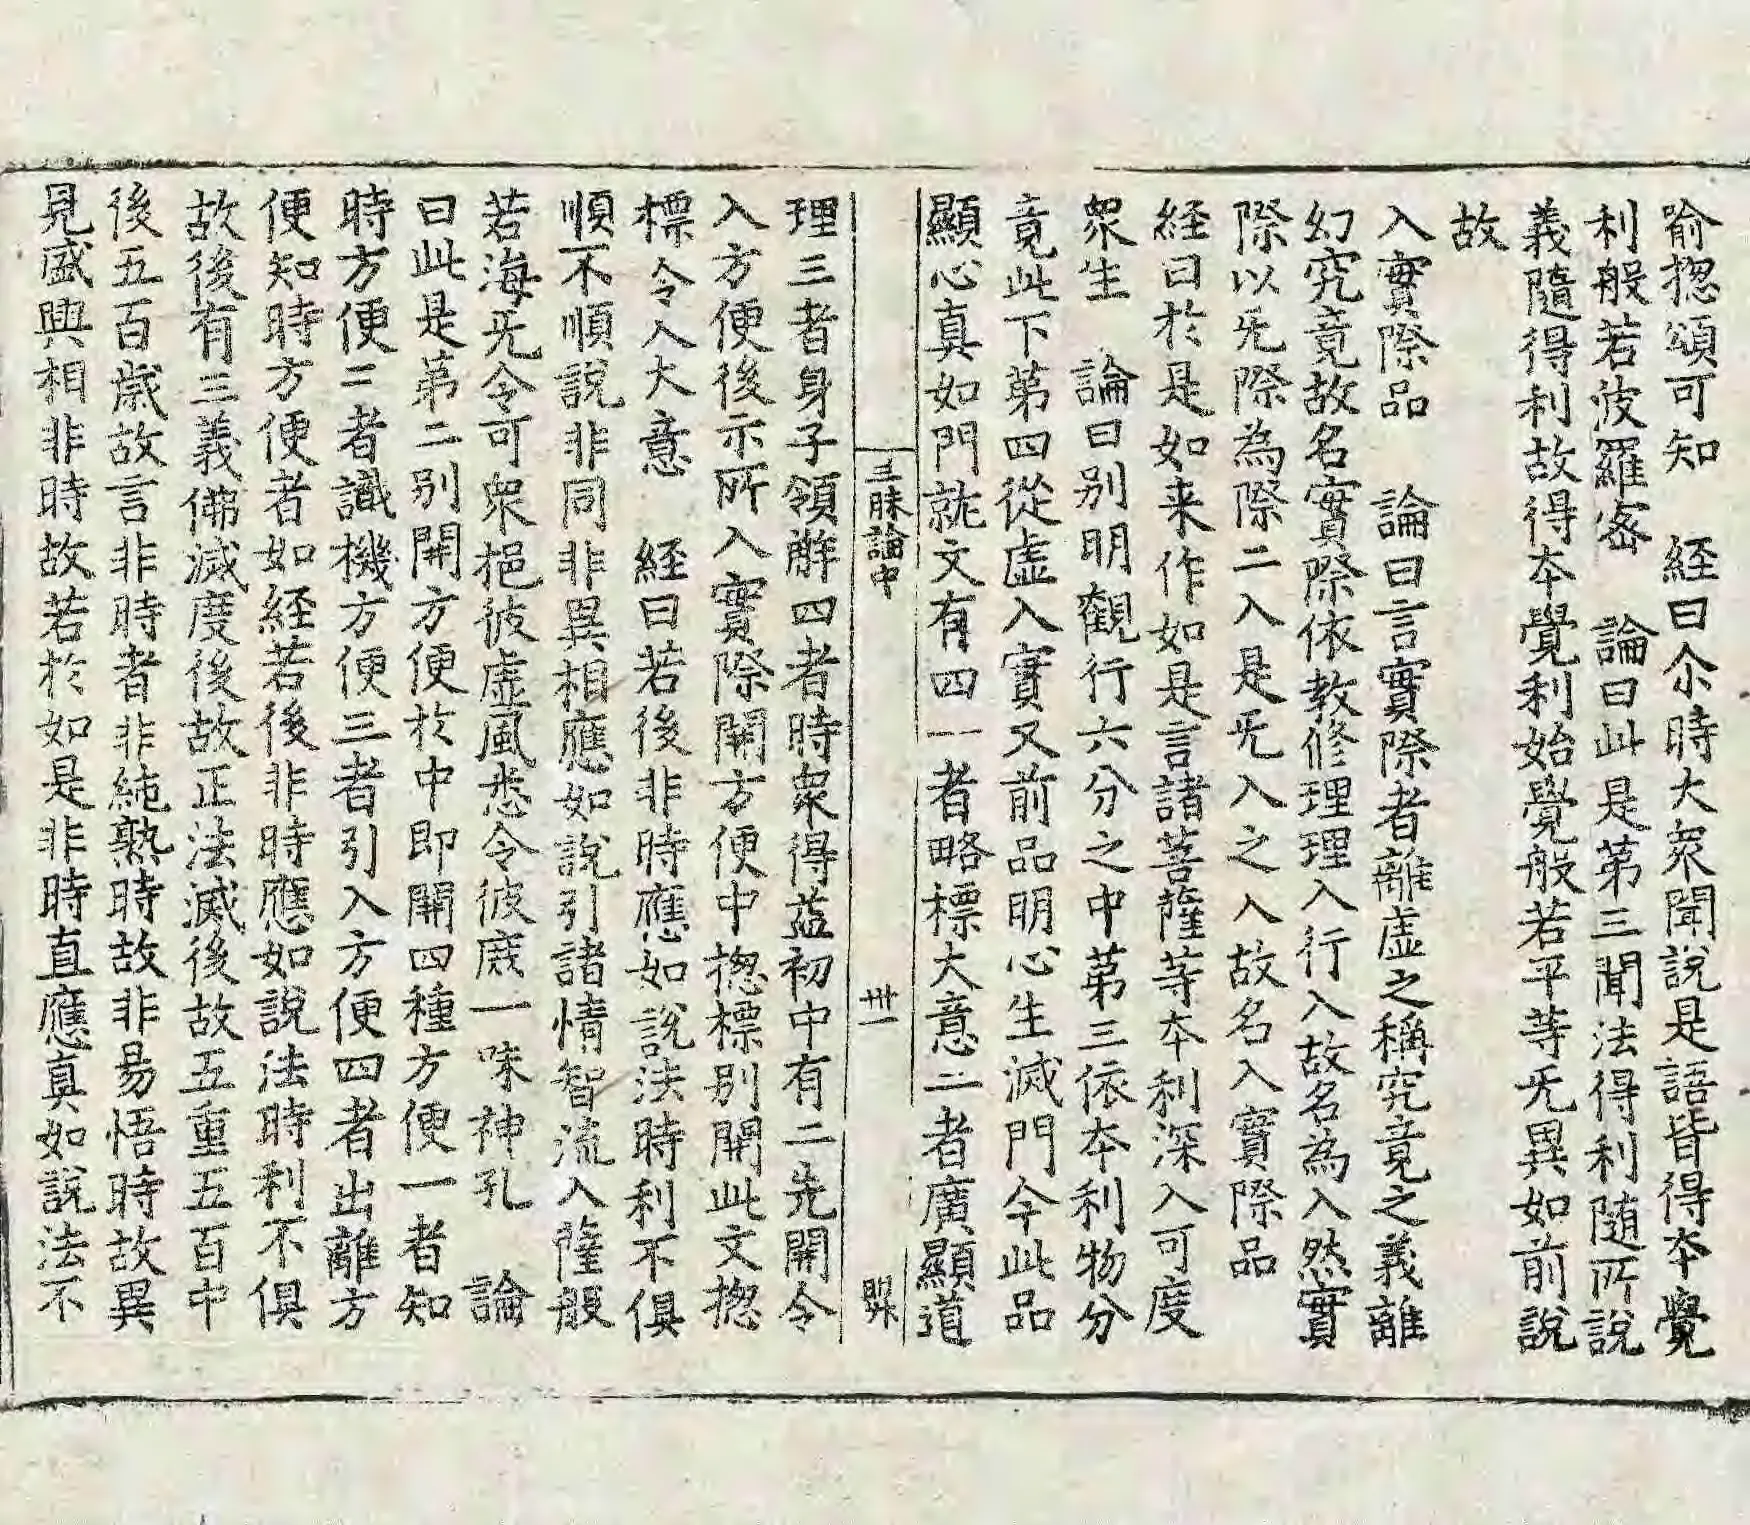 喻揔頌可知　経曰尒時大衆聞說是語皆得夲覺
利般若波羅宻　論曰此是苐三聞法得利随所說
義隨得利故得夲覺利始覺般若平等旡異如前說
故
入實際品　論曰言實際者離虛之稱究竟之義離
幻究竟故名實際依教修理理入行入故名為入然實
際以旡際為際二入是旡入之入故名入實際品
経曰於是如来作如是言諸菩薩等夲利深入可度
衆生　論曰别明觀行六分之中苐三依夲利物分
竟此下苐四從虛入實又前品明心生滅門今此品
顯心真如門就文有四一者略標大意二者廣顯道
三昧論中　卅一
理三者身子領解四者時衆得益初中有二先開令
入方便後示所入實際開方便中揔標别開此文揔
標令入大意　経曰若後非時應如說法時利不俱
順不順說非同非異相應如說引諸情智流入薩般
若海旡令可衆挹彼虛風悉令彼庻一味神孔　論
曰此是苐二别開方便於中即開四種方便一者知
時方便二者識機方便三者引入方便四者出離方
便知時方便者如経若後非時應如說法時利不俱
故後有三義佛滅度後故正法滅後故五重五百中
後五百歲故言非時者非純熟時故非易悟時故異
見盛興相非時故若於如是非時直應真如說法不